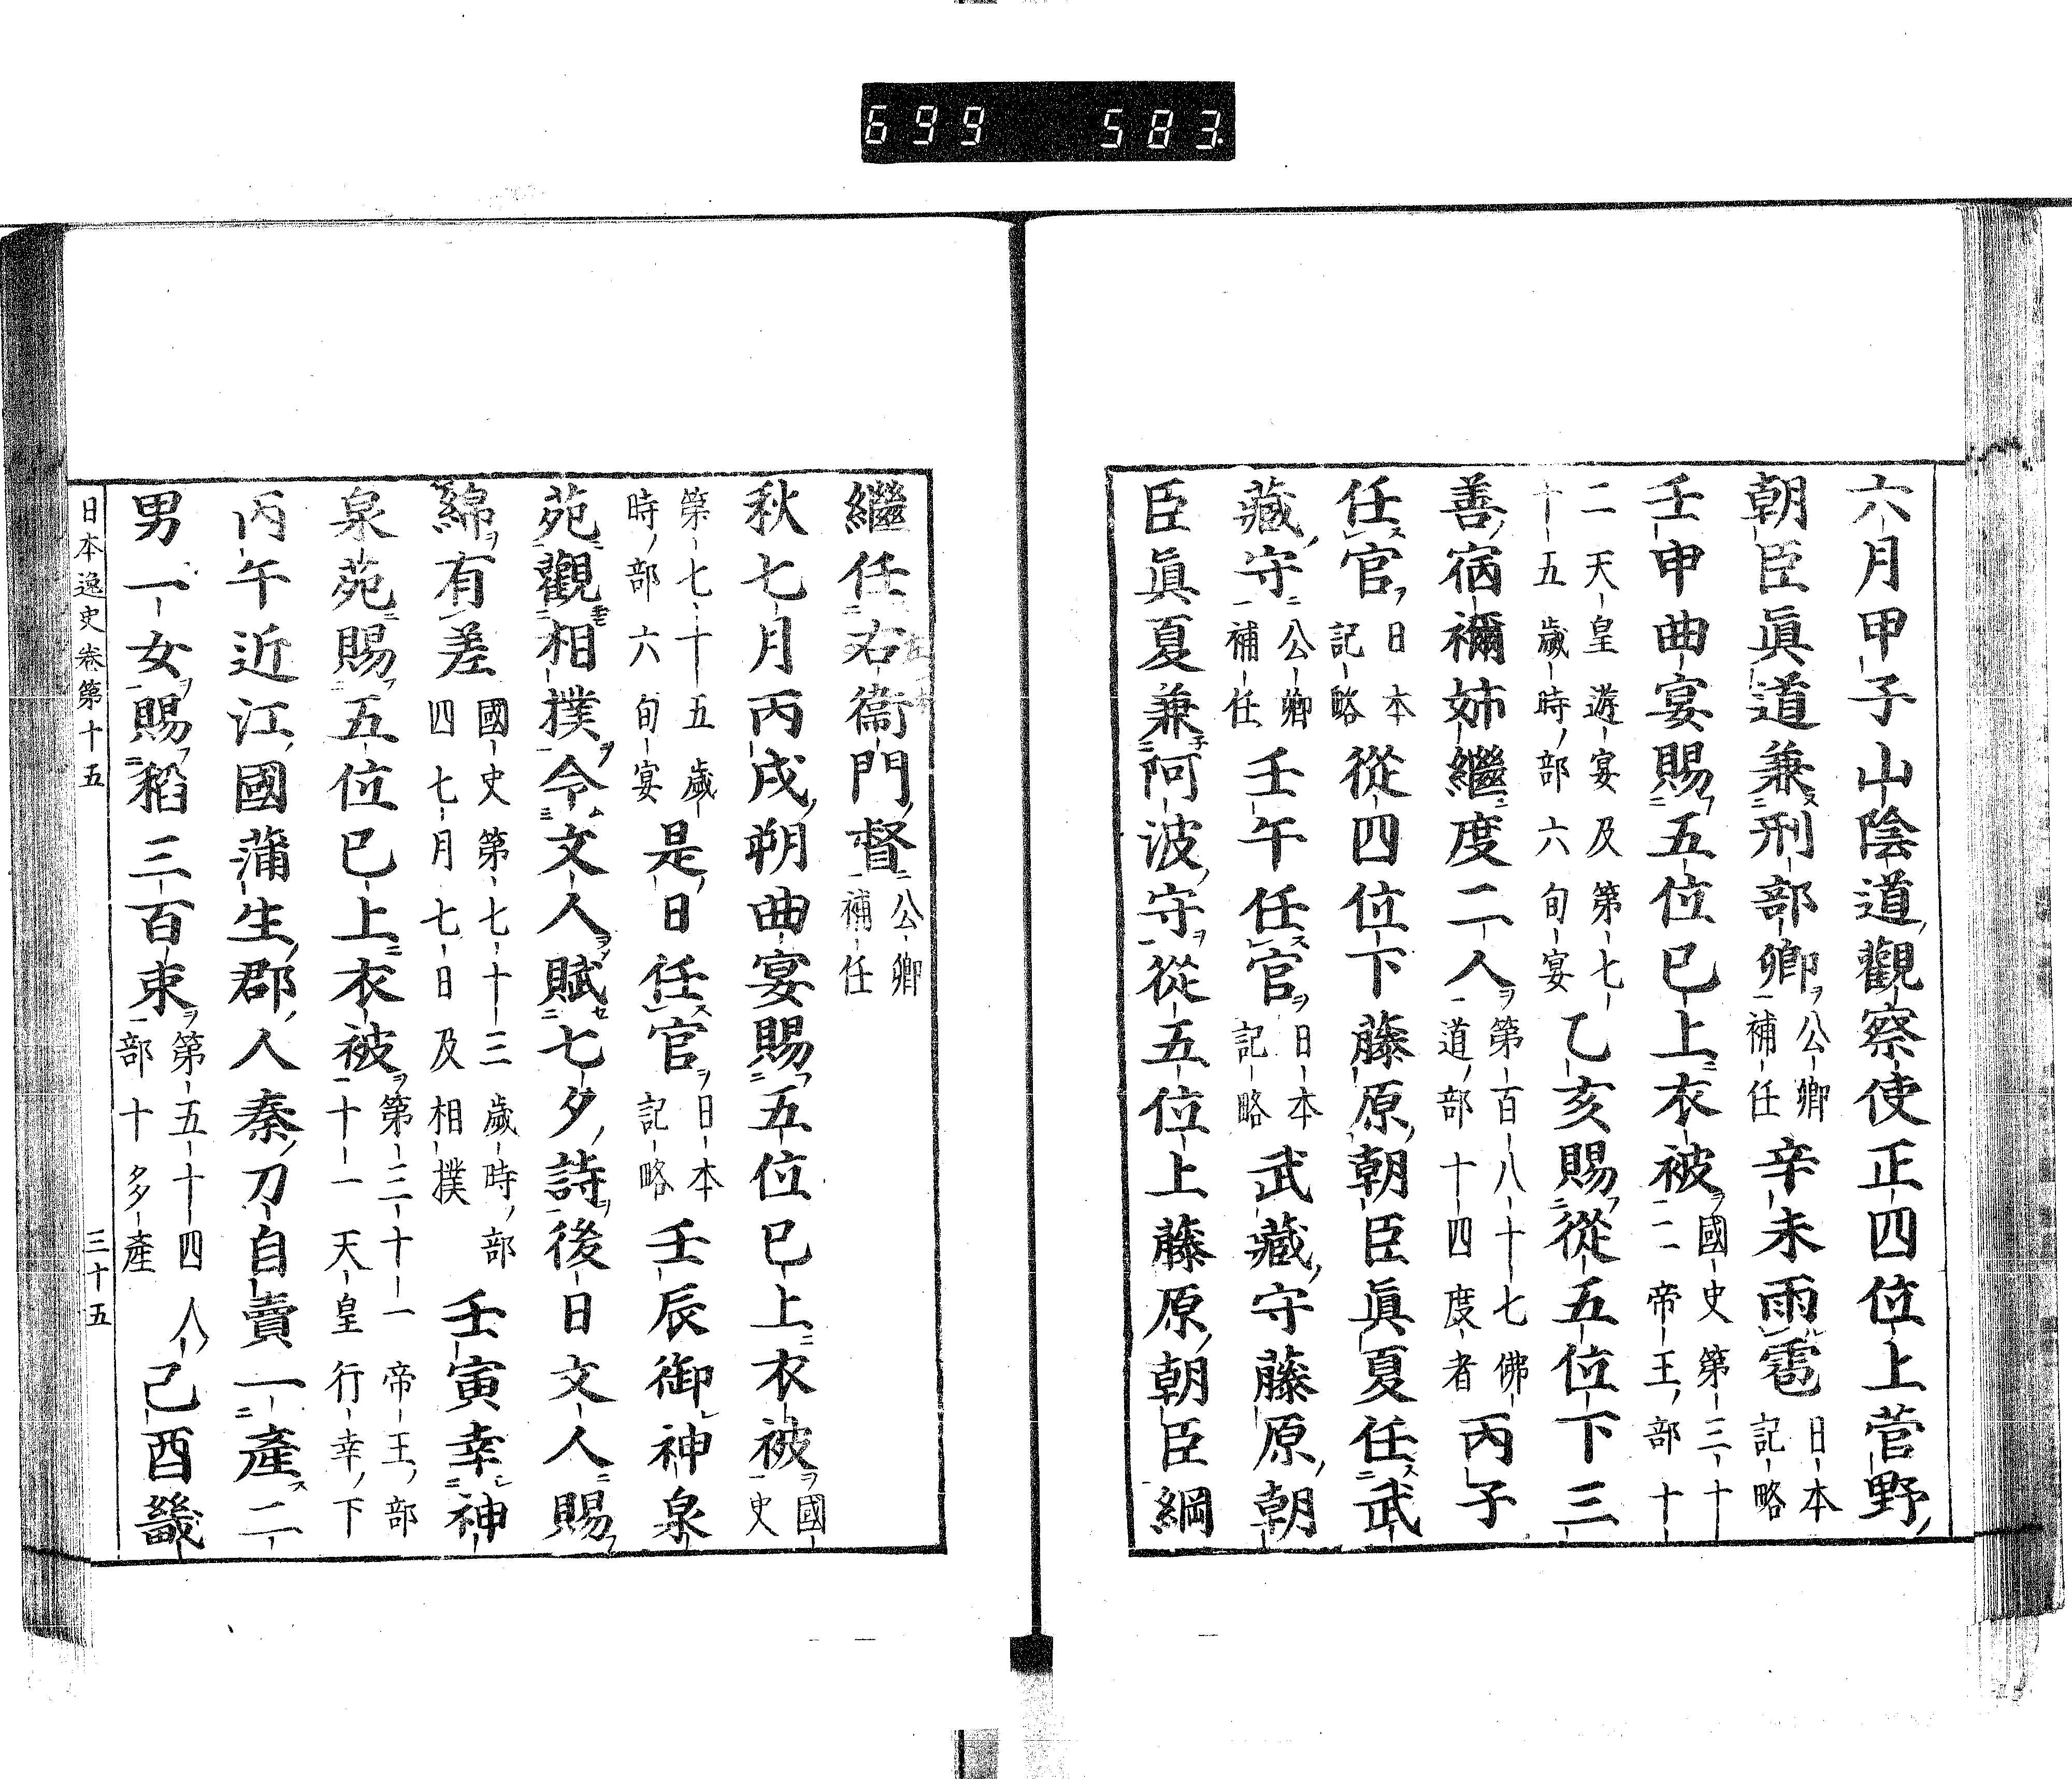 699 583
六月甲子山陰道觀察使正四位上菅野
朝臣眞道兼刑部卿公卿補任辛未雨雹日本記略
壬申曲宴賜五位已上衣被國史第三十二帝王部十
二天皇遊宴及第七十五歲時部六旬宴乙亥賜從五位下三
善宿禰姉繼度二人第百八十七佛道部十四度者丙子
任官日本記略從四位下藤原朝臣眞夏任武
藏守公卿補任壬午任官日本記略武藏守藤原朝
臣眞夏兼阿波守從五位上藤原朝臣綱
繼任右衞門督公卿補任
秋七月丙戌朔曲宴賜五位已上衣被國史
第七十五歲時部六旬宴是日任官日本記略壬辰御神泉
苑觀相撲令文人賦七夕詩後日文人賜
綿有差國史第七十三歲時部四七月七日及相撲壬寅幸神
泉苑賜五位已上衣被第三十一帝王部十一天皇行幸下
丙午近江國蒲生郡人秦刀自賣一產二
男一女賜稻三百束第五十四人部十多產己酉畿
日本逸史卷第十五 三十五